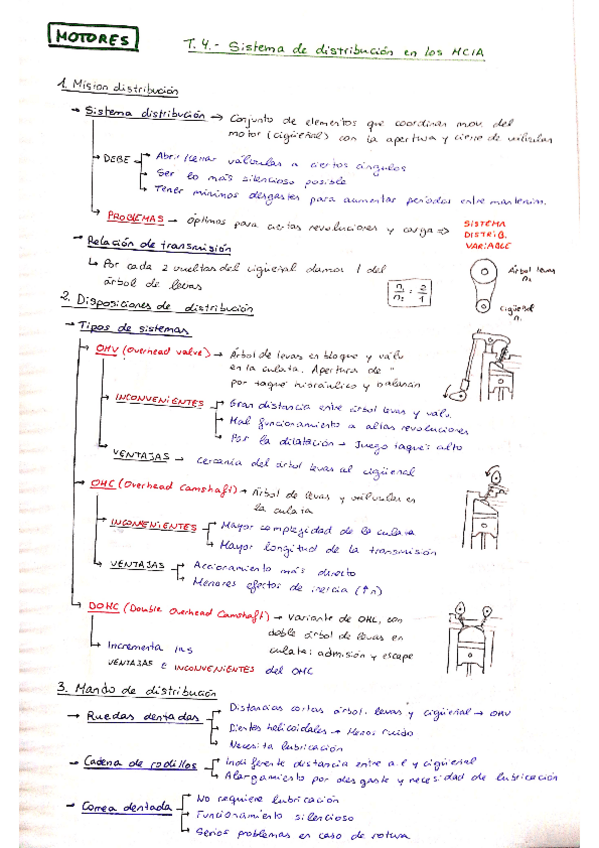 MOTORES
T.4.- Sistema de distribución en los MCIA
1. Mision distribución
Sistema distribución → Conjunto de elementos que coordinan mov. del
motor (cigüeñal) con la apertura y cierre de válvulas
DEBE
Abrir/cerrar válvulas a ciertos ángulos
Ser lo más silencioso posible
Tener mínimos desgastes para aumentar periodos entre mantenim.
PROBLEMAS → Óptimos para ciertas revoluciones y carga ⇒ SISTEMA
DISTRIB.
VARIABLE
Relación de transmisión
Por cada 2 vueltas del cigüeñal damos 1 del
árbol de levas
n1/n2 = 2/1
Árbol levas
n2
cigüeñal
n1
2. Disposiciones de distribución
Tipos de sistemas
OHV (Overhead valve) → Árbol de levas en bloque y válv
en la culata. Apertura de "
por taqué hidráulico y balancín
INCONVENIENTES
Gran distancia entre árbol levas y valv.
Mal funcionamiento a altas revoluciones
Por la dilatación → Juego taqué: alto
VENTAJAS → cercanía del árbol levas al cigüeñal
OHC (Overhead Camshaft) → Árbol de levas y válvulas en
la culata
INCONVENIENTES
Mayor complegidad de la culata
Mayor longitud de la transmisión
VENTAJAS
Accionamiento más directo
Menores efectos de inercia (↑n)
DOHC (Double Overhead Camshaft) → Variante de OHC, con
doble árbol de levas en
culata: admisión y escape
Incrementa las
VENTAJAS e INCONVENIENTES del OHC
3. Mando de distribución
Ruedas dentadas
Distancias cortas árbol levas y cigüeñal → OHV
Dientes helicoidales → Menos ruido
Necesita lubricación
Cadena de rodillos
Indiferente distancia entre a.l y cigüeñal
Alargamiento por desgaste y necesidad de lubricación
Correa dentada
No requiere lubricación
Funcionamiento silencioso
Serios problemas en caso de rotura